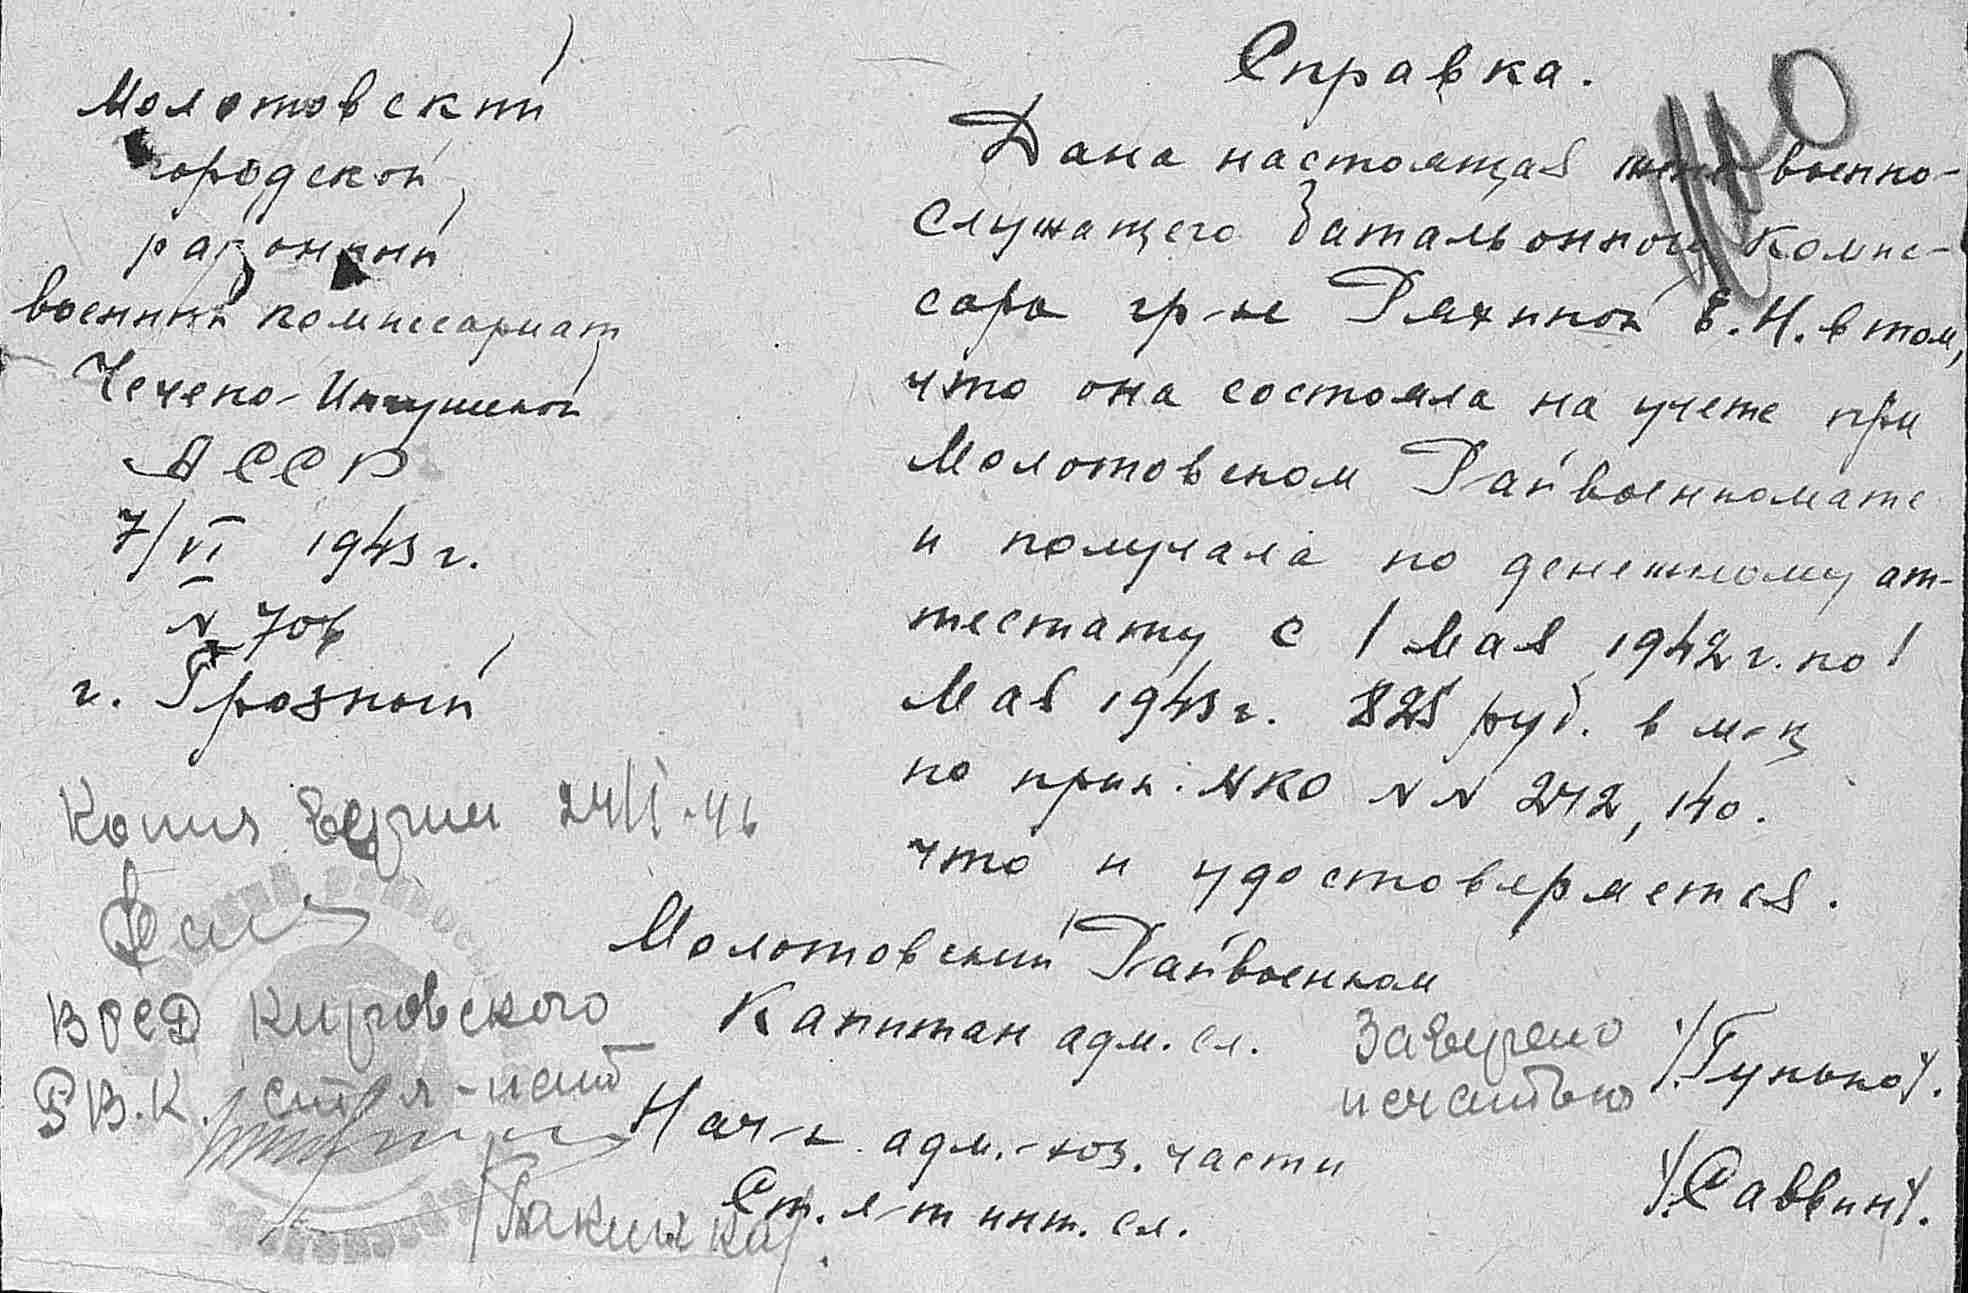 Молотовский
городской
районный
военный комиссариат
Чечено-Ингушской
АССР
7/VI 1943 г.
N 706
г. Грозный
Справка.
Дана настоящая жене военно-
служащего батальонного комис-
сара гр-ке Ряхиной Е.Н. в том,
что она состояла на учете при
Молотовском Райвоенкомате
и получала по денежному ат-
тестату с 1 Мая 1942 г. по 1
Мая 1943 г. 825 руб. в м-ц
по прик. НКО NN 242, 140.
что и удостоверяется.
Молотовский Райвоенком
Капитан адм. сл.
Заверено
печатью
/Гунько/.
Нач-к адм.-хоз. части
Ст. л-т инт. сл.
/Саввин/.
Копия верна 24/I-46
ВРИД Кировского
РВ.К. ст. л-нант